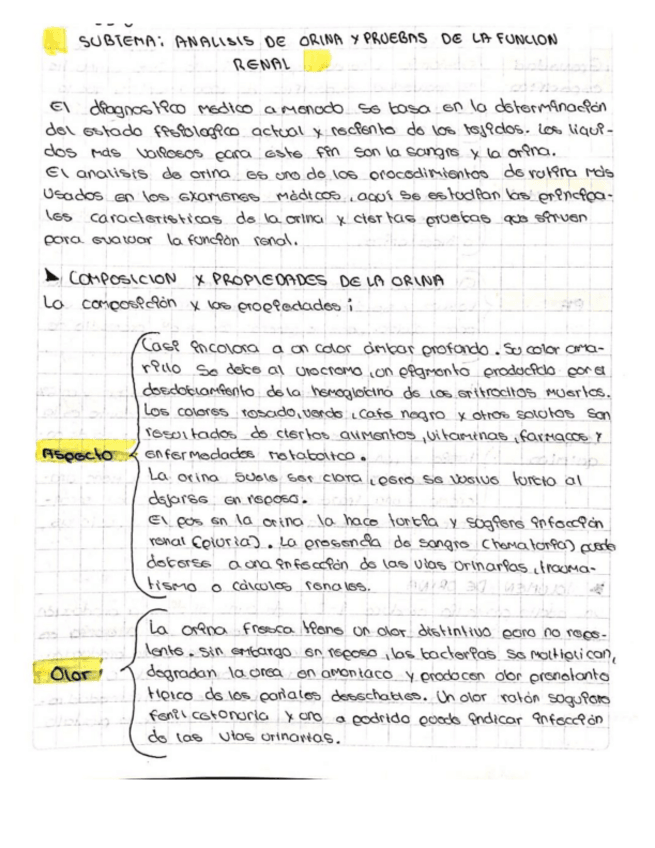 SUBTEMA: ANALISIS DE ORINA Y PRUEBAS DE LA FUNCION
RENAL
El diagnostico medico a menudo se basa en la determinación
del estado fisiologico actual y reciente de los tejidos. Los liqui-
dos más valiosos para este fin son la sangre y la orina.
El analisis de orina es uno de los procedimientos de rutina más
usados en los exámenes médicos, aquí se estudian las principa-
les caracteristicas de la orina y ciertas pruebas que sirven
para evaluar la función renal.
► COMPOSICION Y PROPIEDADES DE LA ORINA
La composición y las propiedades ;
Aspecto
Casi incolora a un color ámbar profundo. Su color ama-
rillo se debe al urocromo, un pigmento producido por el
desdoblamiento de la hemoglobina de los eritrocitos muertos.
Los colores rosado, verde, café negro y otros solutos son
resultados de ciertos alimentos, vitaminas, farmacos y
enfermedades metabolico.
La orina suele ser clara, pero se vuelve turbia al
dejarse en reposo.
El pus en la orina la hace turbia y sugiere infección
renal (piuria). La presencia de sangre (hematuria) puede
deberse a una infección de las vías urinarias, trauma-
tismo o cálculos renales.
Olor
La orina fresca tiene un olor distintivo pero no repe-
lente. Sin embargo en reposo, las bacterias se multiplican,
degradan la urea en amoniaco y producen olor penetrante
tipico de los pañales desechables. Un olor ratón sugiere
fenil cetonuria y uno a podrido puede indicar infección
de las vias urinarias.